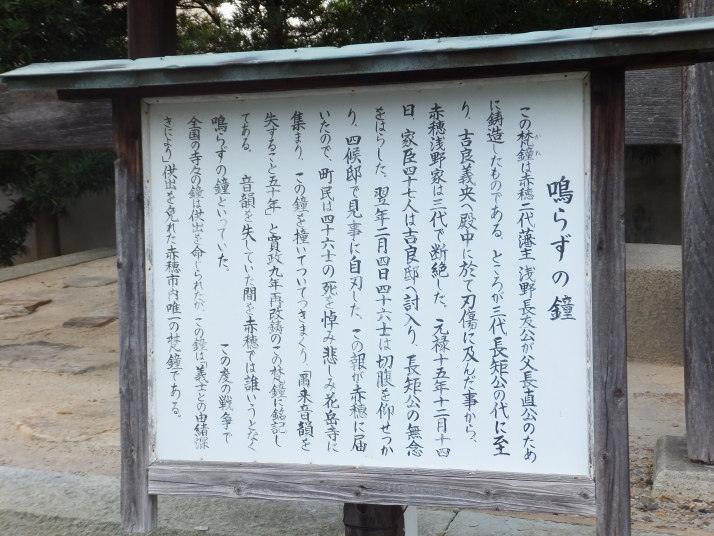 鳴らずの鐘
この梵鐘は赤穂二代藩主 浅野長友公が父長直公のため
に鋳造したものである。ところが三代長矩公の代に至
り、吉良義央へ殿中に於て刃傷に及んだ事から、
赤穂浅野家は三代で断絶した。元禄十五年十二月十四
日、家臣四十七人は吉良邸へ討入り、長矩公の無念
をはらした。翌年二月四日四十六士は切腹を仰せつか
り、四候邸で見事に自刃した。この報が赤穂に届
いたので、町民は四十六士の死を悼み悲しみ花岳寺に
集まり、この鐘を撞いてついてつきまくり、「爾来音韻を
失すること五十年」と寛政九年再改鋳のこの梵鐘に銘記し
てある。 音韻を失していた間を赤穂では誰いうとなく
鳴らずの鐘といっていた。 この度の戦争で
全国の寺々の鐘は供出を命じられたが、この鐘は「義士との由緒深
きにより」供出を免れた赤穂市内唯一の梵鐘である。